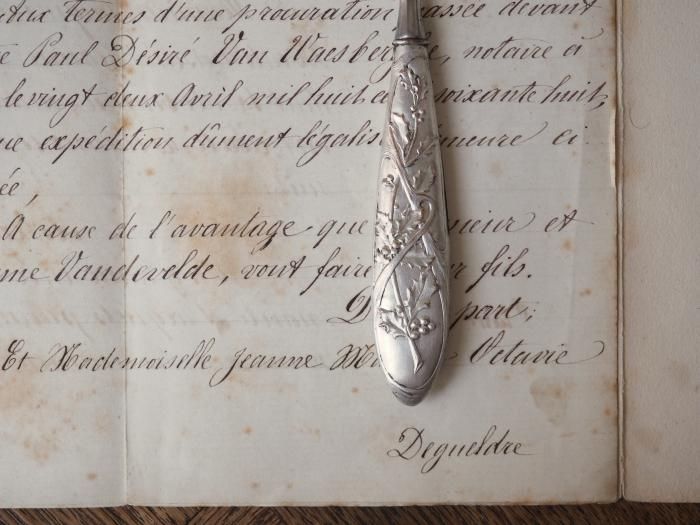 Aux termes d'une procuration passée devant
Paul Désiré Van Waesberghe, notaire à
le vingt deux Avril mil huit soixante huit,
expédition dûment légalis meure ci-
ée,
A cause de l'avantage que sieur et
me Vandevelde, vont faire fils.
D part;
Et Mademoiselle Jeanne Ma Octavie
Degueldre